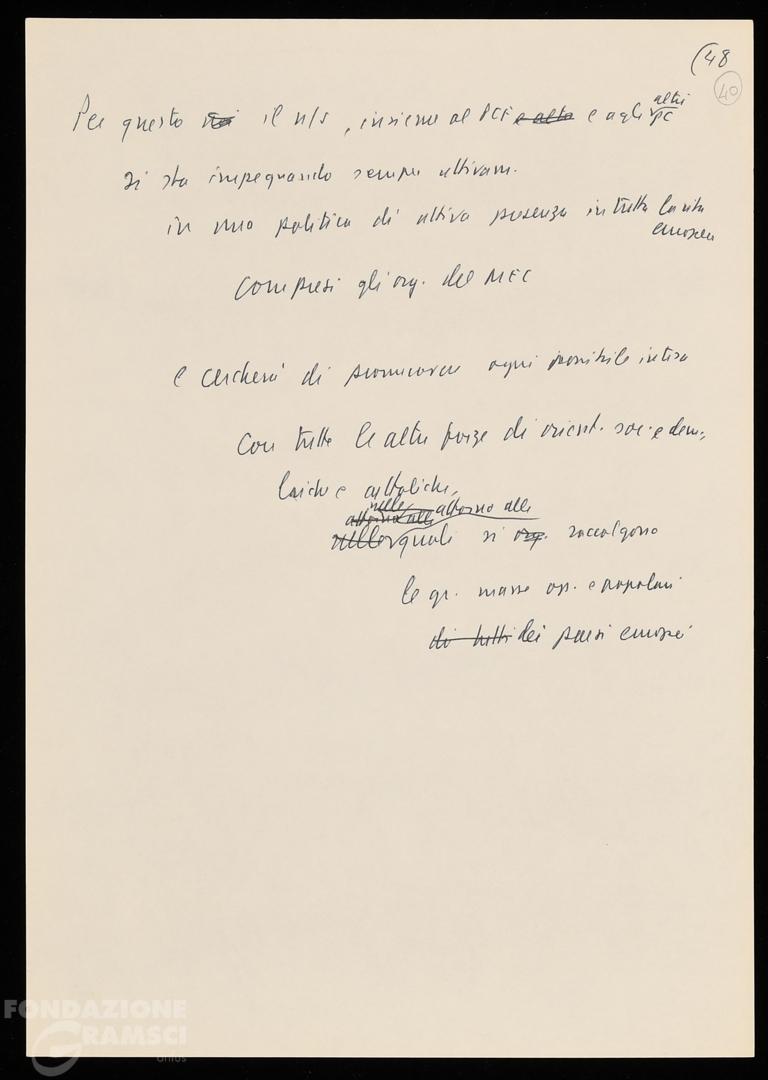 (48
40
Per questo noi il n/s, insieme al PCF e altr e agli altri PC
si sta impegnando sempre attivam.
in una politica di attiva presenza in tutta la vita
europea
compresi gli org. del MEC
e cercherà di promuovere ogni possibile intesa
con tutte le altre forze di orient. soc. e dem.,
laiche e cattoliche,
nelle attorno alle
attorno alle
nelle quali si org. raccolgono
le gr. masse op. e popolari
di tutti dei paesi europei
FONDAZIONE
GRAMSCI
onlus